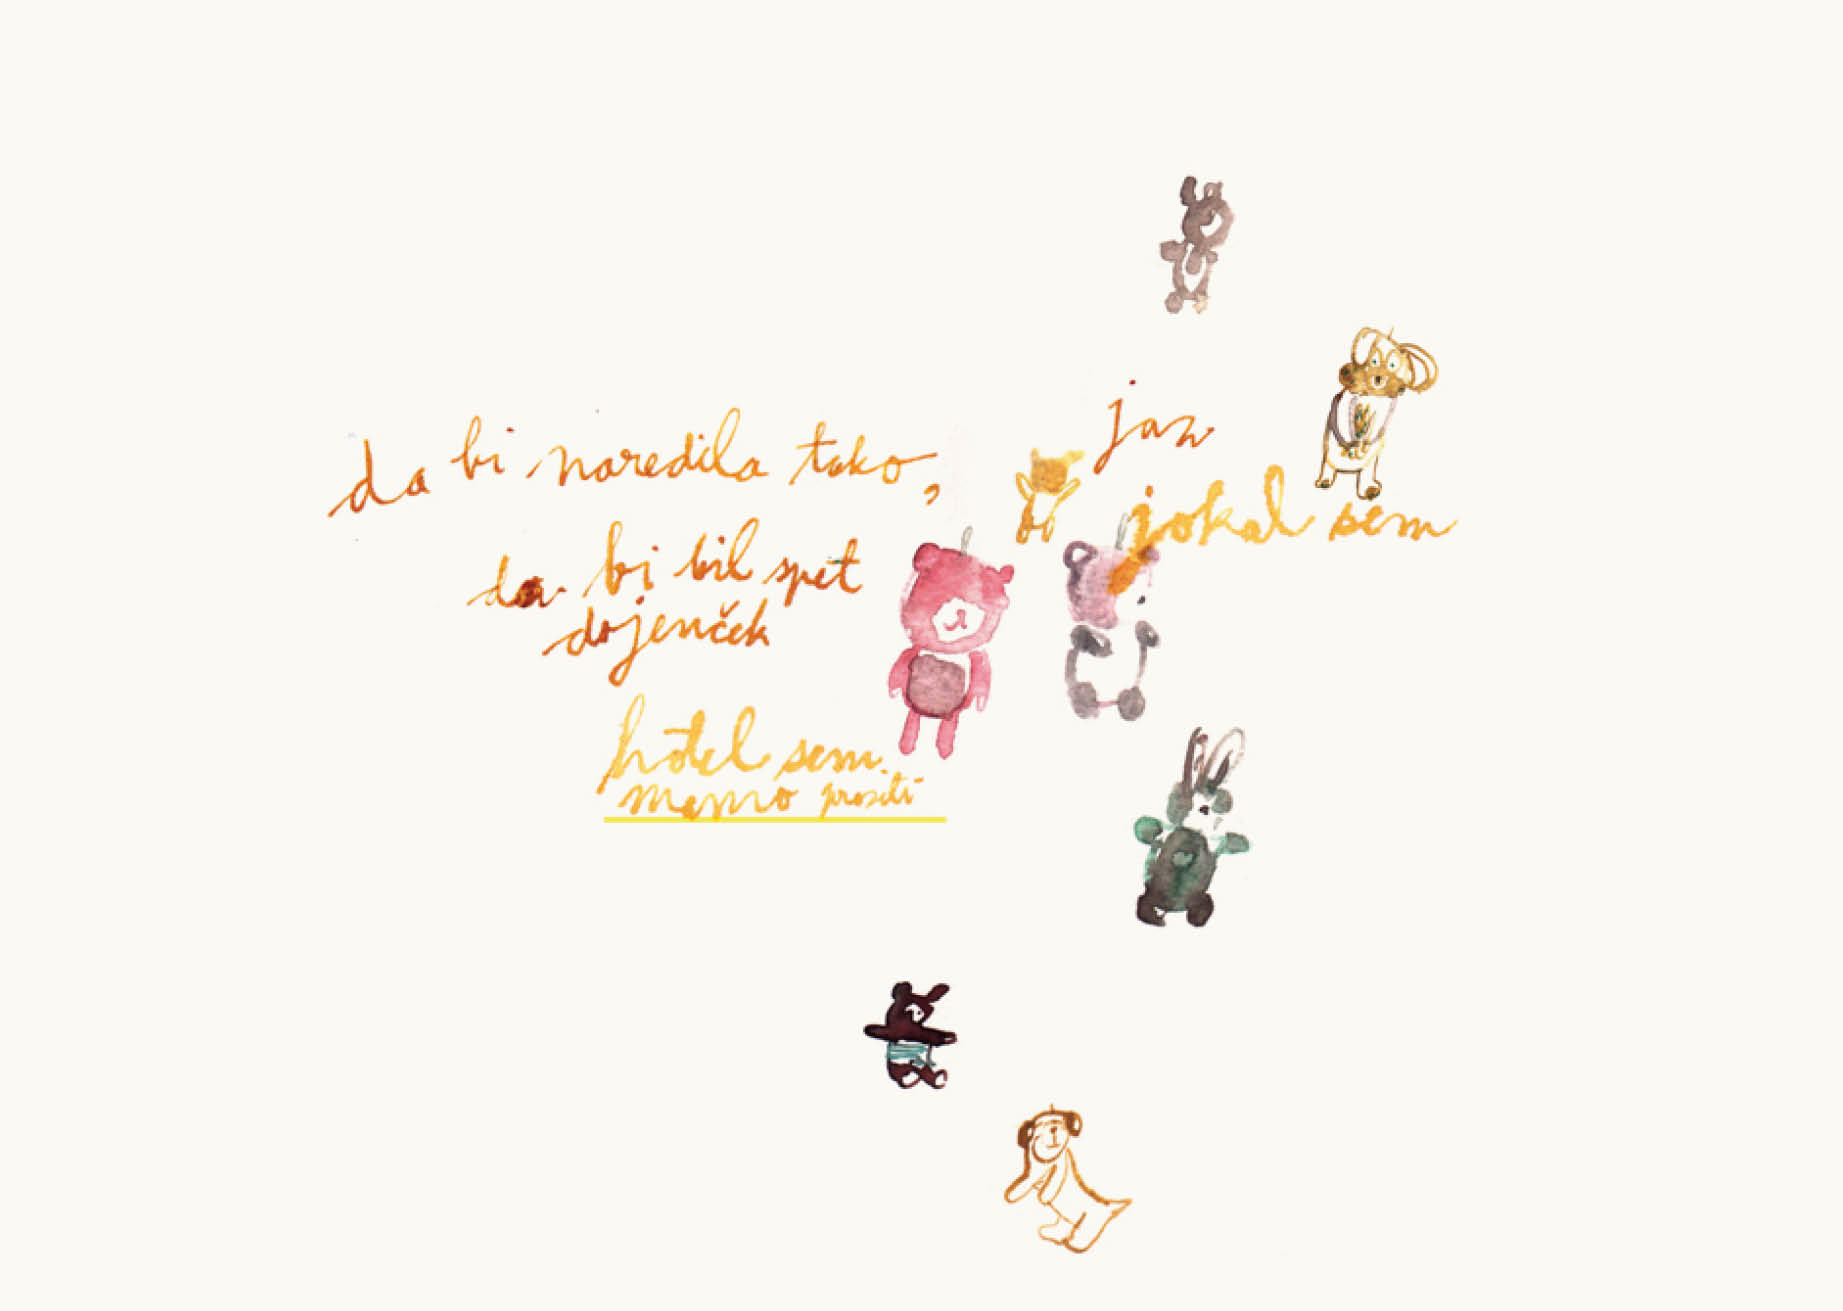 da bi naredila tako,
da bi bil spet
dojenček
hotel sem
mamo prositi
jaz
jokal sem